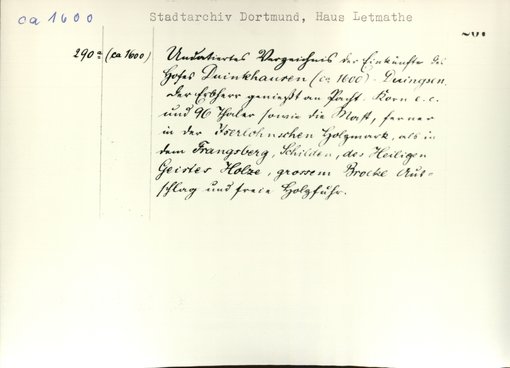 ca 1600
Stadtarchiv Dortmund, Haus Letmathe
290a (ca 1600)
Undatiertes Verzeichnis der Einkünfte des
Hofes Duinkhausen (ca 1600) - Duingsen.
Der Erbherr genießt an Pacht Korn e.c.
und 96 Thaler sowie die Mast, ferner
in der Iserlohnschen Holzmark, als in
dem Frangsberg, Schilden, des Heiligen
Geistes Holze, grossem Brocke Auf=
schlag und freie Holzfuhr.